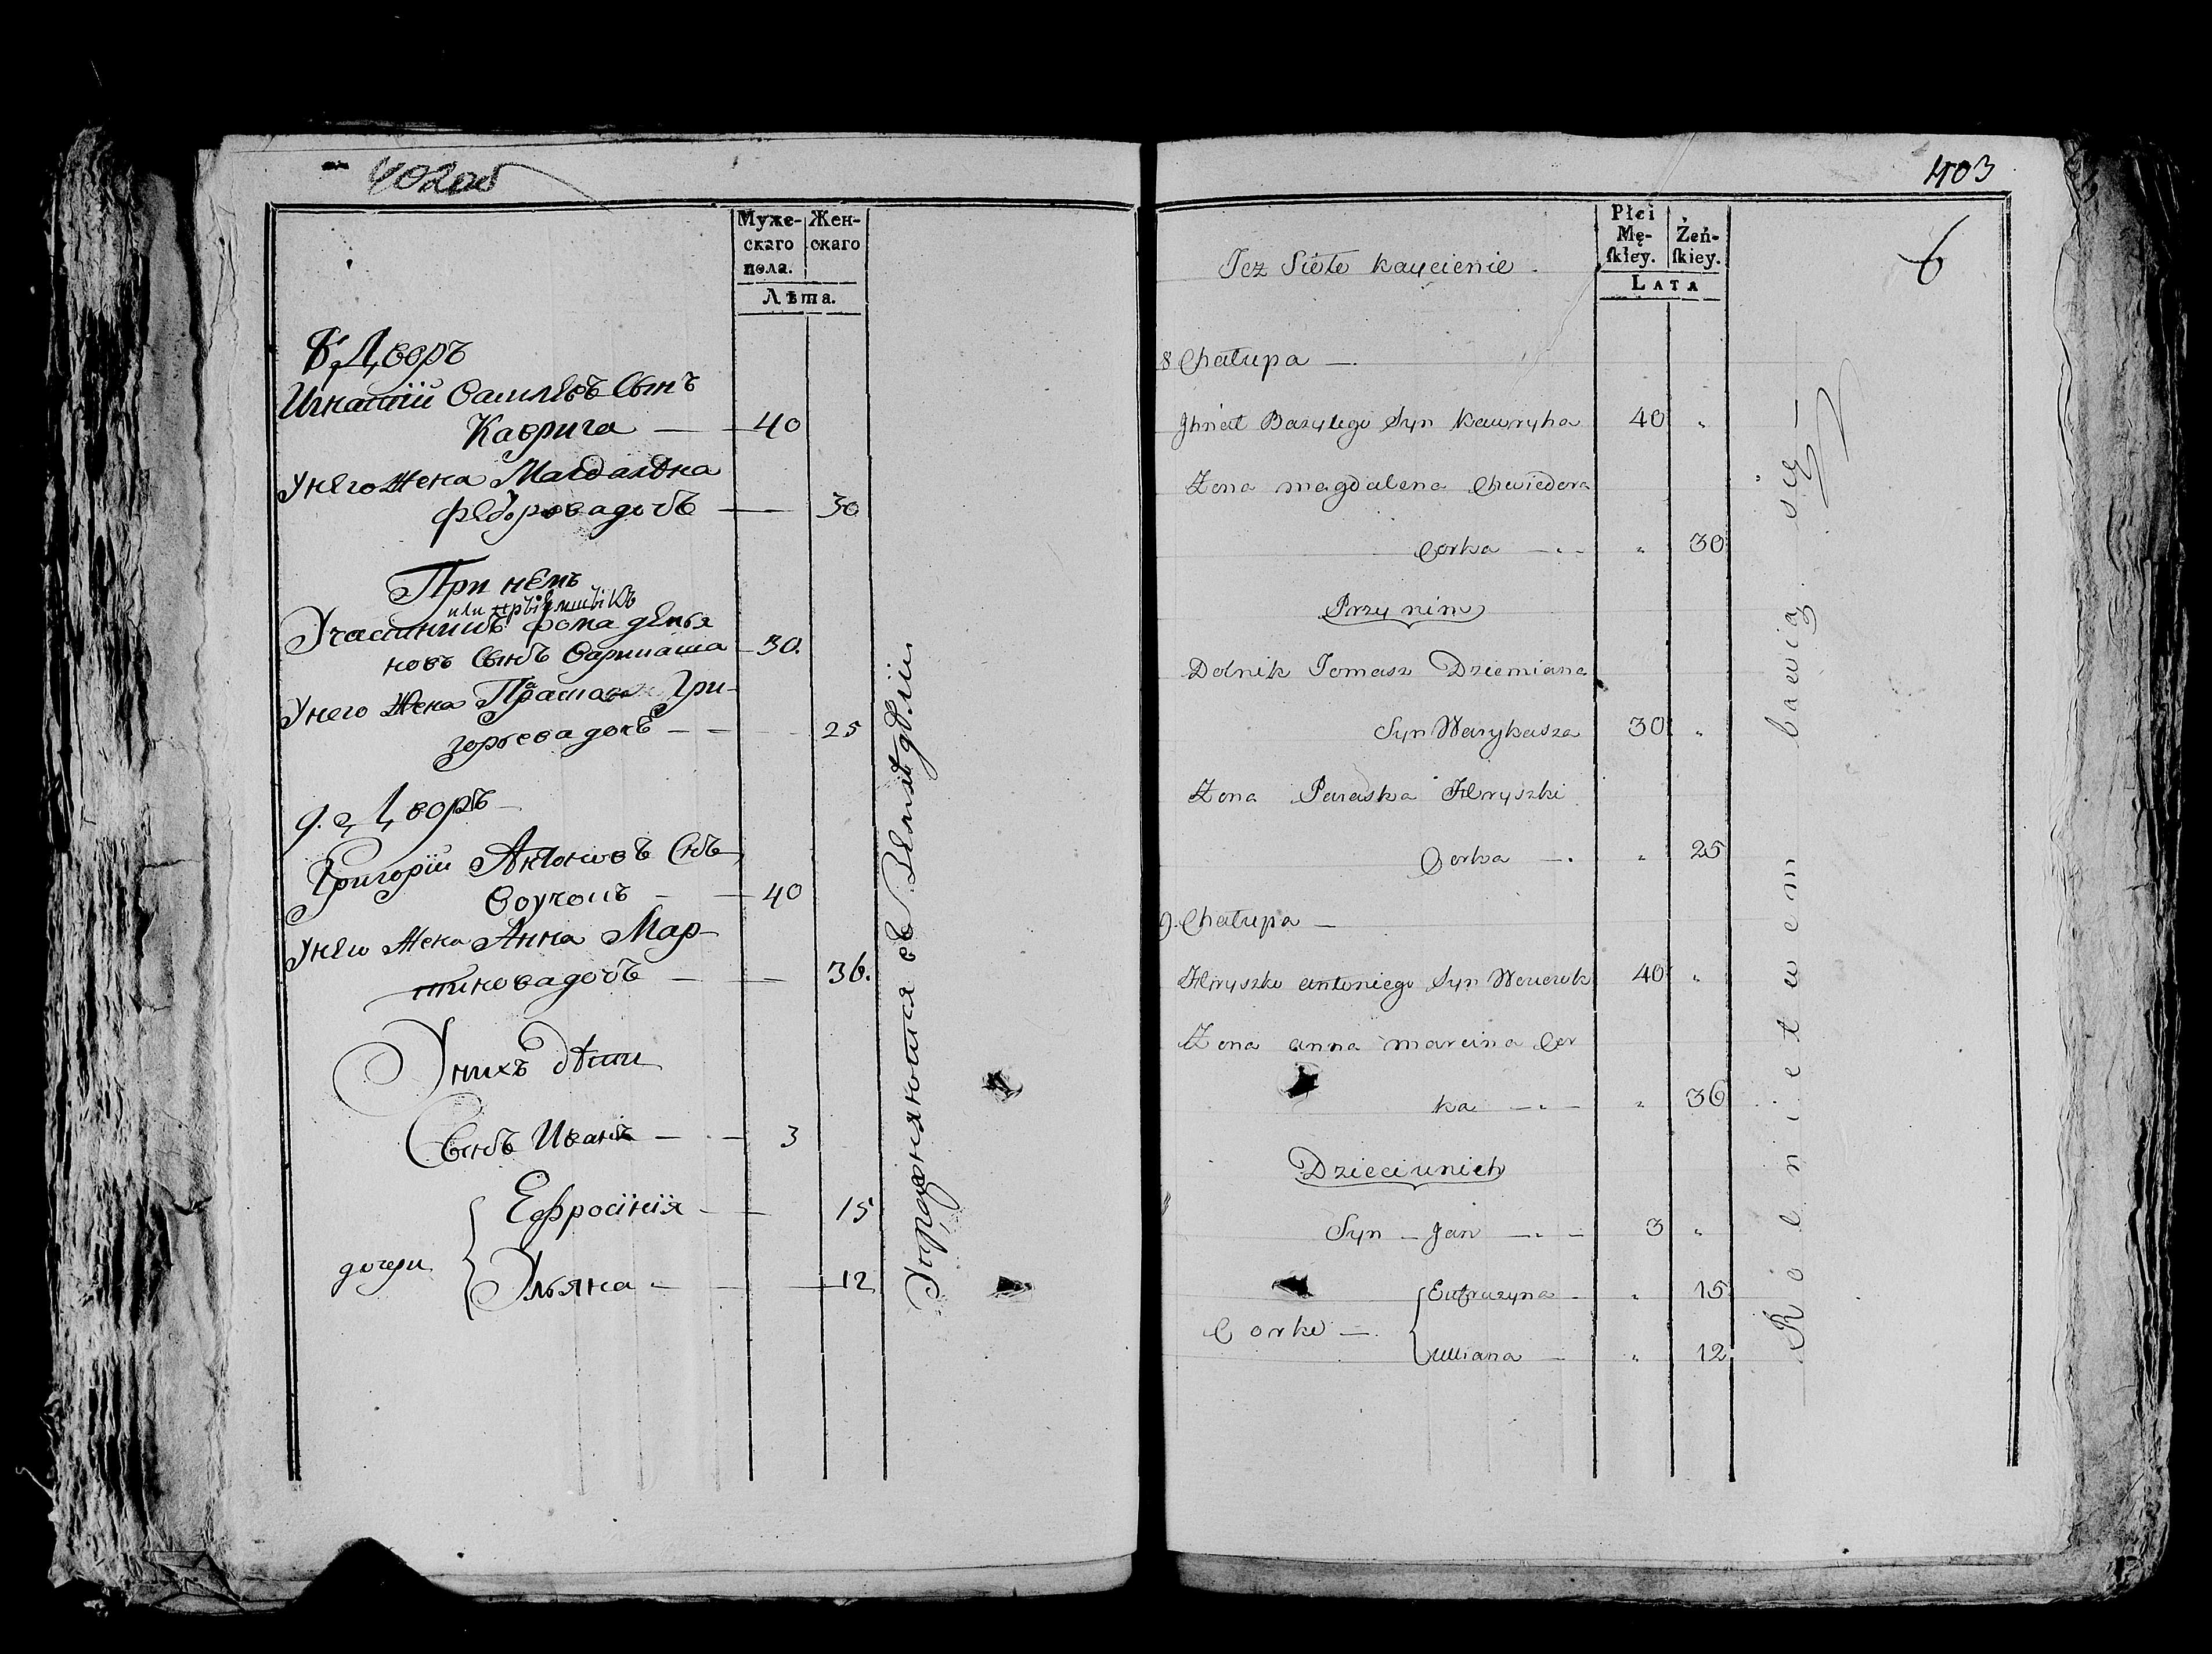 402об
Муже-
скаго
пола.
Жен-
скаго
Лѣта.
8. Дворъ
Игнатій Василевъ Сынъ
Каврига — 40
У него Жена Магдалѣна
Федорова дочь — 30
При немъ
или прыймшыкъ
Участникъ Фома демья
новъ Сынъ Варикаша — 30.
У него Жена Праскa Гри-
горьева дочь — 25
9. Дворъ
Григорій Антоновъ Снъ
Воучокъ — 40
У него Жена Анна Мар-
тинова дочь — 36.
У нихъ дѣти
Сынъ Иванъ — 3
Ефросінія — 15
дочери
Ульяна — 12
Упражняются въ Земледѣліи
403
6
Płci
Mę-
skiey.
Żeń-
skiey.
LATA
Też Sioło
8 Chałupa —
Jhnat Bazylego Syn Kawryha 40 „
Zona magdalena Chwiedora
Corka — „ 30
Przy nim
Dolnik Tomasz Dziemiana
Syn Warykasza 30 „
Zona Paraska Hryszki
Corka — „ 25
9. Chałupa —
Hryszko antoniego Syn Wouczok 40 „
Zona anna marcina Cor
ka — „ 36
Dzieci u nich
Syn — Jan — 3 „
Eufruzyna — „ 15
Corki —
Ulliana — „ 12
Rolnictwem bawią się